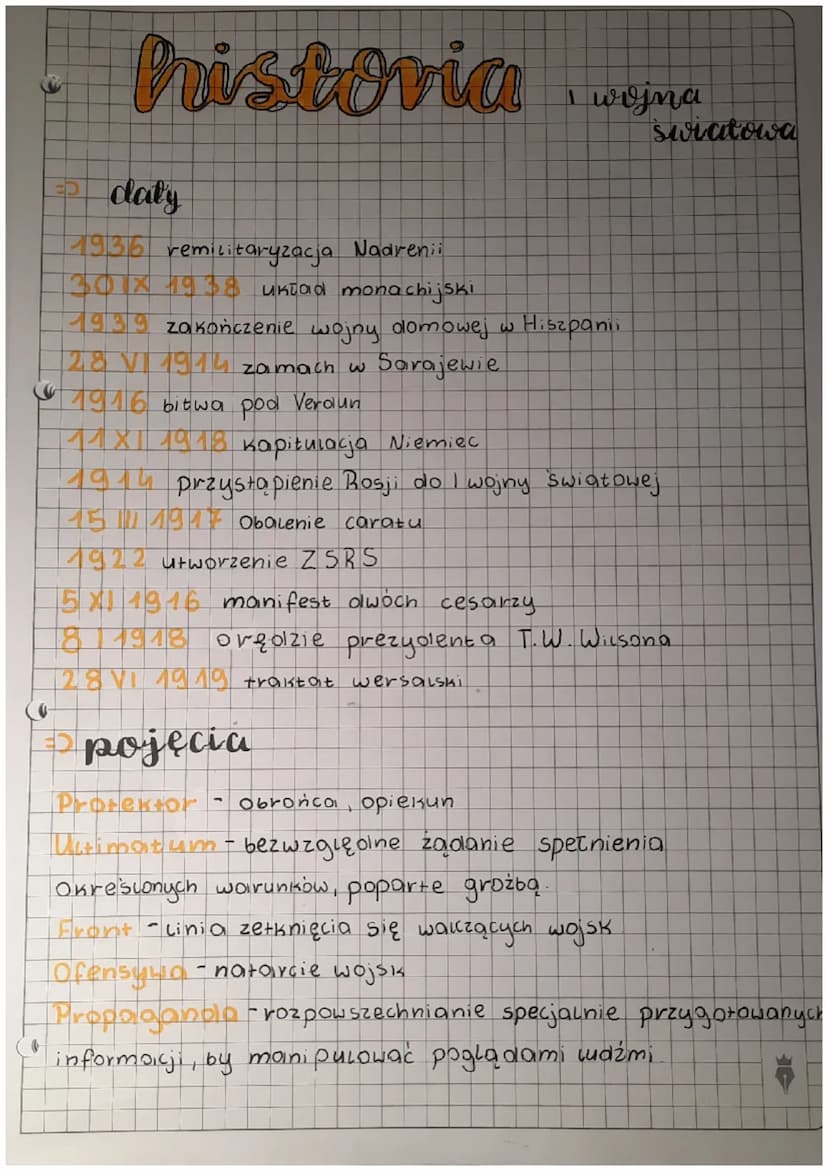 historia
I wojna
światowa
=> daty
1936 remilitaryzacja Nadrenii
30 IX 1938 układ monachijski
1939 zakończenie wojny domowej w Hiszpanii
28 VI 1914 zamach w Sarajewie
1916 bitwa pod Verdun
11 XI 1918 kapitulacja Niemiec
1914 przystąpienie Rosji do I wojny światowej
15 III 1917 Obalenie caratu
1922 utworzenie ZSRS
5 XI 1916 manifest dwóch cesarzy
8 I 1918 orędzie prezydenta T.W. Wilsona
28 VI 1919 traktat wersalski
=> pojęcia
Protektor - obrońca, opiekun
Ultimatum - bezwzględne żądanie spełnienia
określonych warunków, poparte groźbą.
Front - linia zetknięcia się walczących wojsk
Ofensywa - natarcie wojsk
Propaganda - rozpowszechnianie specjalnie przygotowanych
informacji, by manipulować poglądami ludźmi.